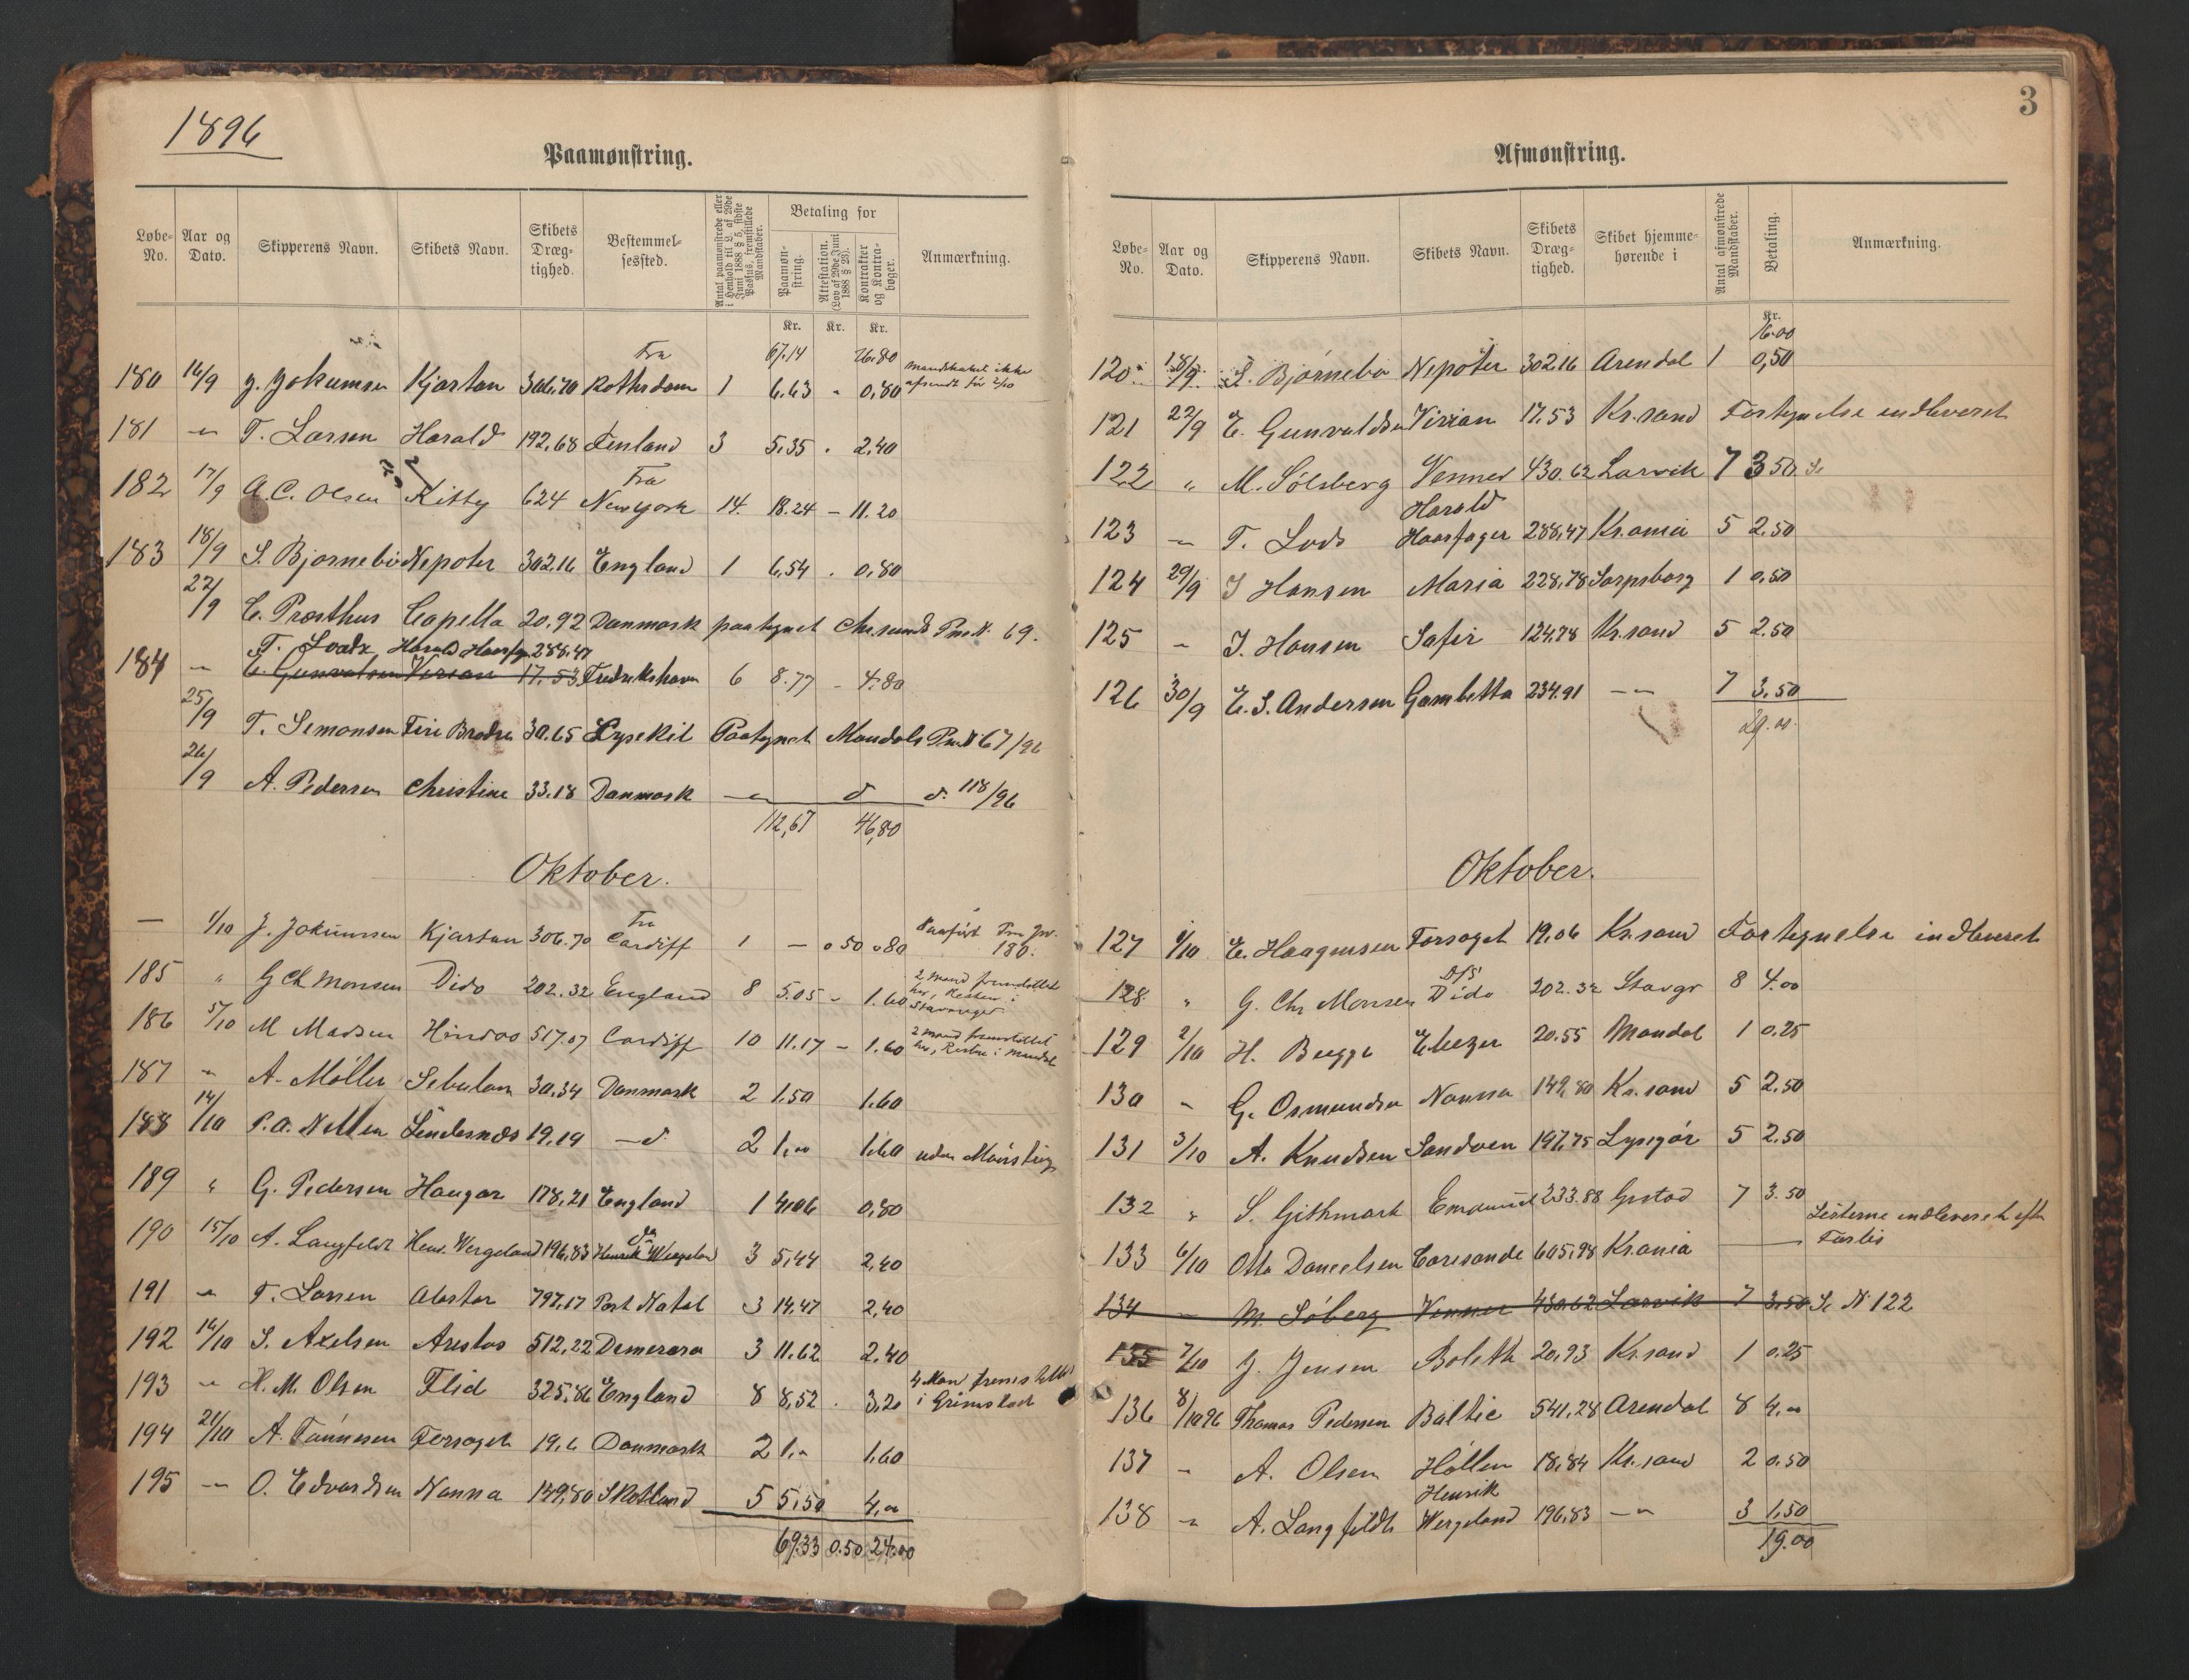 1896
Paamønstring.
Løbe-No. Aar og Dato. Skipperens Navn. Skibets Navn. Skibets Dræg-tighed. Bestemmel-sessted. Antal paamønstrede eller i Henhold til L. af 29de Juni 1888 § 5, sidste Passus, fremstillede Mandskaber. Betaling for Paamøn-string. Attestation. (Lov af 29de Juni 1888 § 28). Kontrakter og Kontra-bøger. Anmærkning.
Kr. Kr. Kr.
Fra 67.14 26.80
180 16/9 J. Jokumsen Kjartan 306,70 Rotherdam 1 6.63 - 0,80 Mandskabet ikke afsendt før 1/10
181 -"- T. Larsen Harald 192,68 Finland 3 5.35 . 2.40
182 17/9 A. C. Olsen Kitty 624 Fra New York 14. 18.24 - 11.20
183 18/9 S. Bjørnebo Nepoter 302.16 England 1 6,54 . 0,80
22/9 E. Præsthus Capella 20,92 Danmark paategnet Chrsands Prot. 69.
T. Lods Harald Haarfag. 288,47
184 -"- E. Gunvalsen Virian 17.53 Fredrikshavn 6 8.77 - 4.80
25/9 T. Simonsen Fire Brødre 30.65 Lysekil Paategnet Mandals Prot 67/96
26/9 A. Pedersen Christine 33.18 Danmark -"- d d. 118/96
112,67 46,80
Oktober.
— 1/10 J. Jokumsen Kjartan 306.70 Fra Cardiff 1 — 0 50 0 80 Paaført Pro No. 180.
185 " G Ch Monsen Dido 202.32 England 8 5.05 - 1.60 2 Mand fremstillet her, Resten i Stavanger
186 5/10 M Madsen Hindoo 517.07 Cardiff 10 11.17 - 1.60 2 Mand fremstillet her, Resten i Mandal
187 " A. Møller Sebulon 30,34 Danmark 2 1.50 1.60
188 14/10 P. A. Nilsen Lindernæs 19,19 -d- 2 1,00 1.60 uden Mønstring
189 " G. Pedersen Haugar 178,21 England 1 4,06 0,80
190 15/10 A. Langfeldt Henr. Wergeland 196,83 do Henrik Wergeland 3 5,44 2,40
191 -"- T. Larsen Alastor 797,17 Port Natal 3 14.47 2,40
192 16/10 S. Axelsen Arestos 512,22 Demerara 3 11.62 2.40
193 -"- H. M. Olsen Flid 325,86 England 8 8,52 . 3,20 4 Man fremstillet i Grimstad
194 21/10 A. Tønnesen Forsøget 19,6 Danmark 2 1.- 1.60
195 -"- O. Edvardsen Nanna 149,80 Skotland 5 5,50 4,00
69.33 0.50 24.00
3
Afmønstring.
Løbe-No. Aar og Dato. Skipperens Navn. Skibets Navn. Skibets Dræg-tighed. Skibet hjemme-hørende i Antal afmønstrede Mandskaber. Betaling. Anmærkning.
Kr.
16.00
120 18/9 S. Bjørnebo Nepoter 302.16 Arendal 1 0,50
121 22/9 E. Gunvaldsen Virian 17.53 Kr.sand Fortegnelse indleveret
122 " M. Sølsberg Venner 430.62 Larvik 7 3 50
123 -"- T. Lods Harald Haarfager 288,47 Kr.ania 5 2.50
124 29/9 J Hansen Maria 228,78 Sarpsborg 1 0.50
125 - J. Hansen Safir 124.78 Kr.sand 5 2.50
126 30/9 E. S. Andersen Gambetta 234.91 -"- 7 3.50
29.00
Oktober.
127 1/10 E. Haagensen Forsøget 19.06 Kr.sand Fortegnelse indleveret
128 " G. Chr Monsen D/S Dido 202.32 Stavgr 8 4.00
129 2/10 H. Bugge Ebezer 20.55 Mandal 1 0.25
130 - G. Osmundsen Nanna 149,80 Kr.sand 5 2.50
131 3/10 A. Knudsen Sandøen 197,75 Lyngør 5 2.50
132 " S. Githmark Emanuel 233.88 Grstad 7 3.50
133 6/10 Otto Danielsen Coresande 605,98 Kr.ania — Listerne indleveret efter Forlis
134 - M. Søberg Venner 430.62 Larvik 7 3.50 Se N 122
135 7/10 J. Jensen Boleth 20,93 Kr.sand 1 0.25
136 8/10 96 Thomas Pedersen Baltic 541,28 Arendal 8 4,00
137 - A. Olsen Høllen 18,84 Kr.sand 2 0.50
138 -"- A. Langfeldt Henrik Wergeland 196,83 -"- 3 1,50
19.00